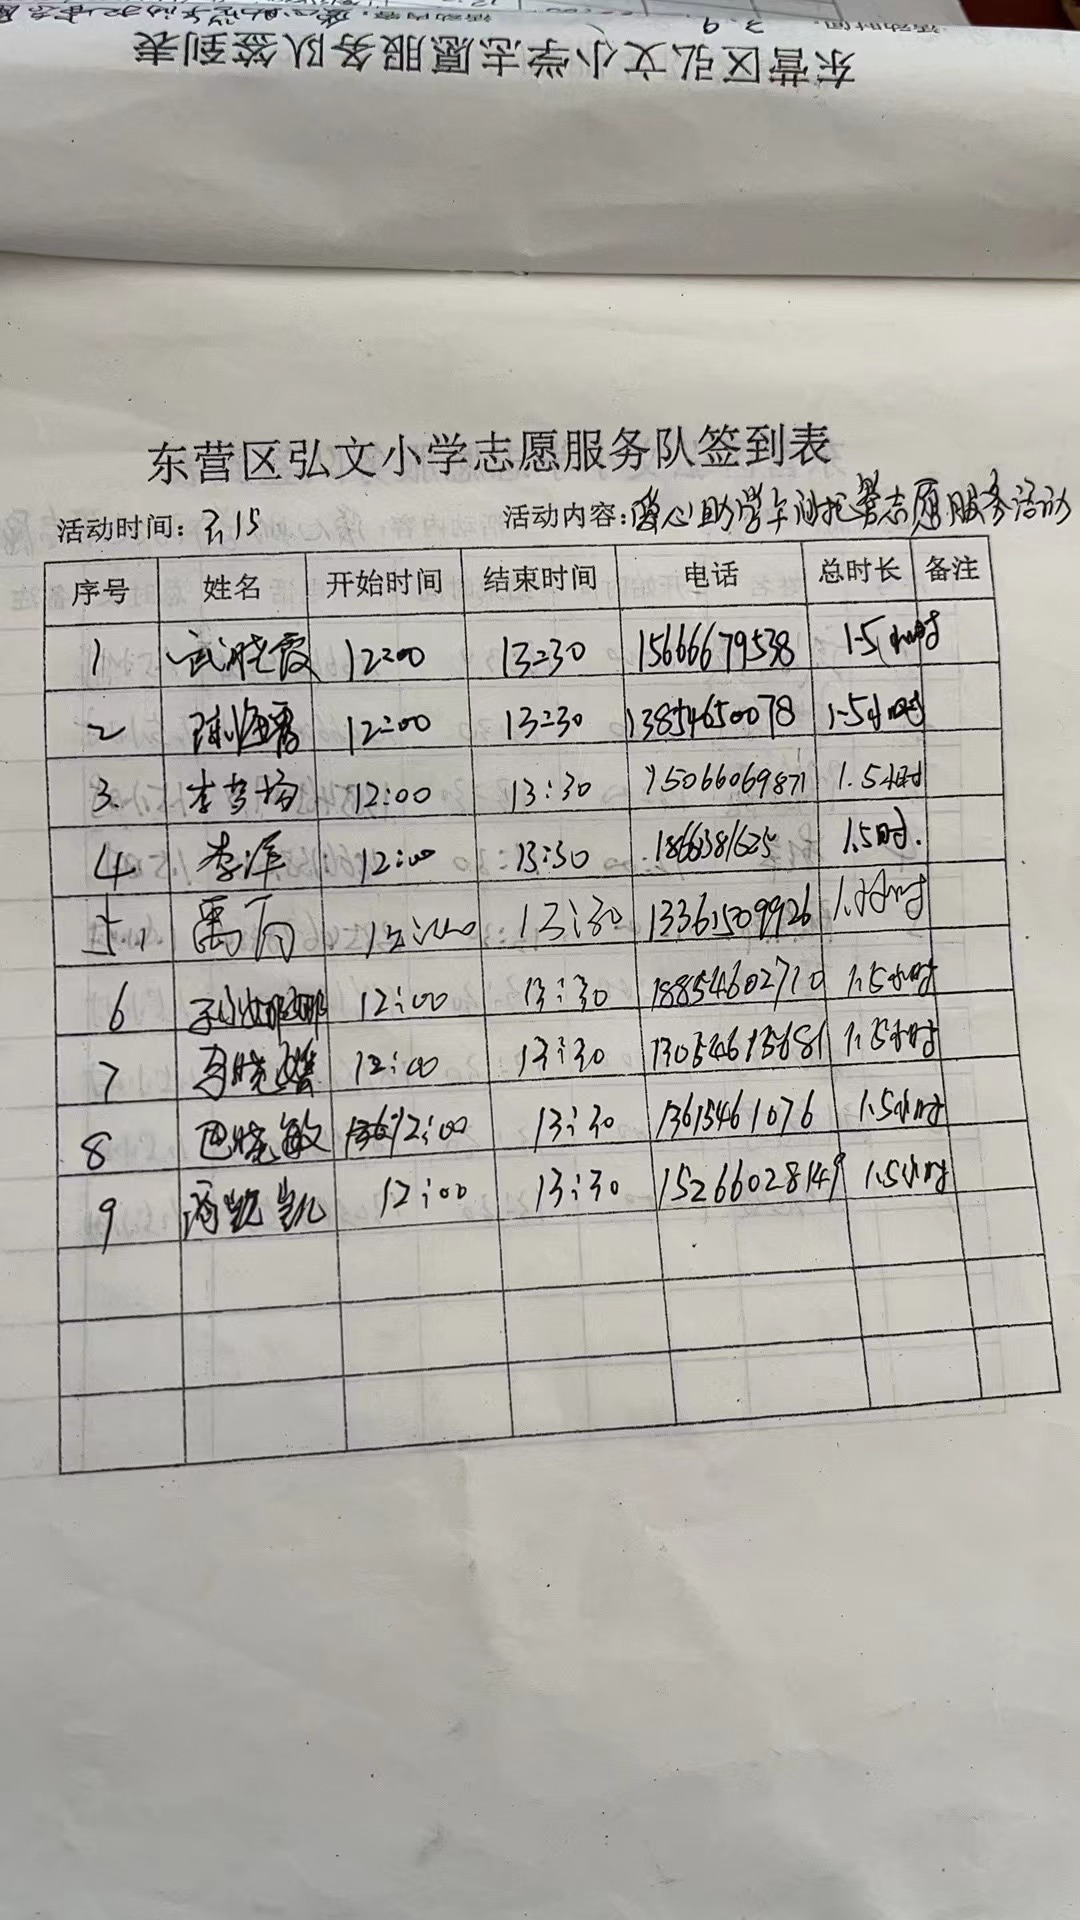 东营区弘文小学志愿服务队签到表
活动时间: 3.9 活动内容:
东营区弘文小学志愿服务队签到表
活动时间: 3.15 活动内容: 爱心助学午间托管志愿服务活动
序号 姓名 开始时间 结束时间 电话 总时长 备注
1 武晓霞 12:00 13:30 15666679538 1.5小时
2 陈海霞 12:00 13:30 13854650078 1.5小时
3. 李梦杨 12:00 13:30 15066069871 1.5小时
4 李洋 12:00 13:30 1866381625 1.5时.
5. 禹 12:00 13:30 13361509926 1.5小时
6 孙娜娜 12:00 13:30 18854602710 1.5小时
7 马晓 12:00 13:30 13054615681 1.5小时
8 巴晓敏 12:00 13:30 13615461076 1.5小时
9 凯凯 12:00 13:30 15266028149 1.5小时